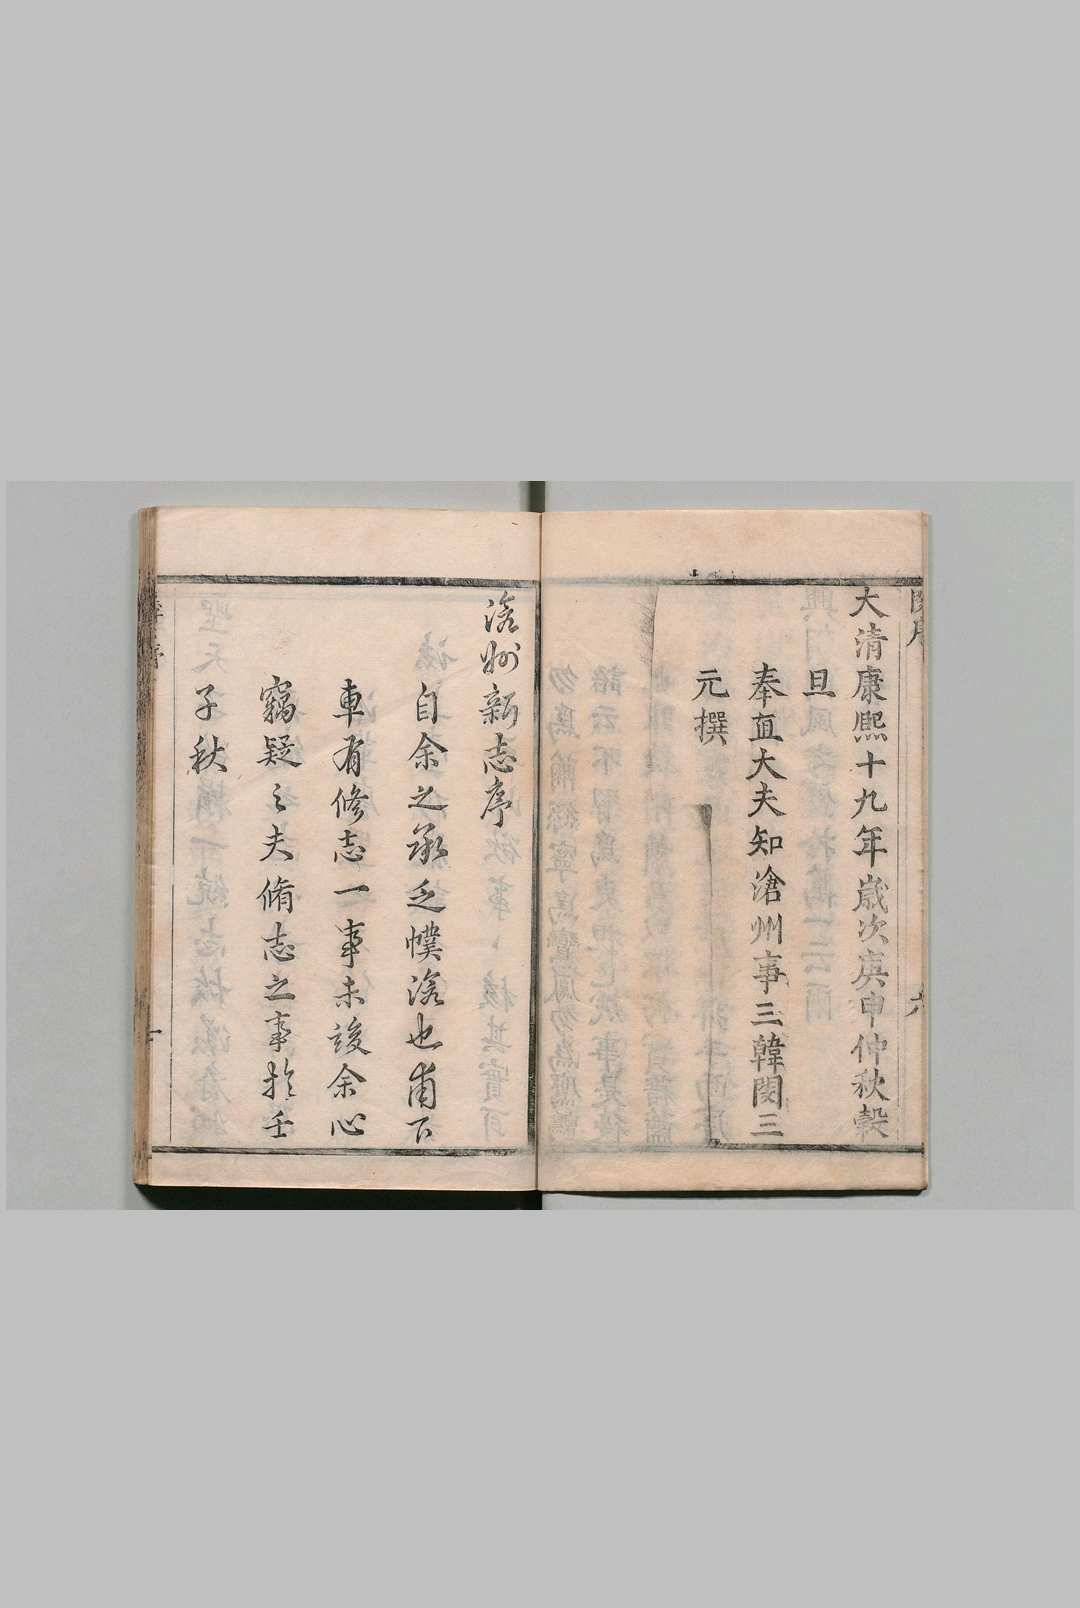 大清康熙十九年歲次庚申仲秋穀
旦
奉直大夫知滄州事三韓閔三
元撰
滄州新志序
自余之承乏幞滄也甫下
車有修志一事未竣余心
竊疑之夫脩志之事於壬
子秋